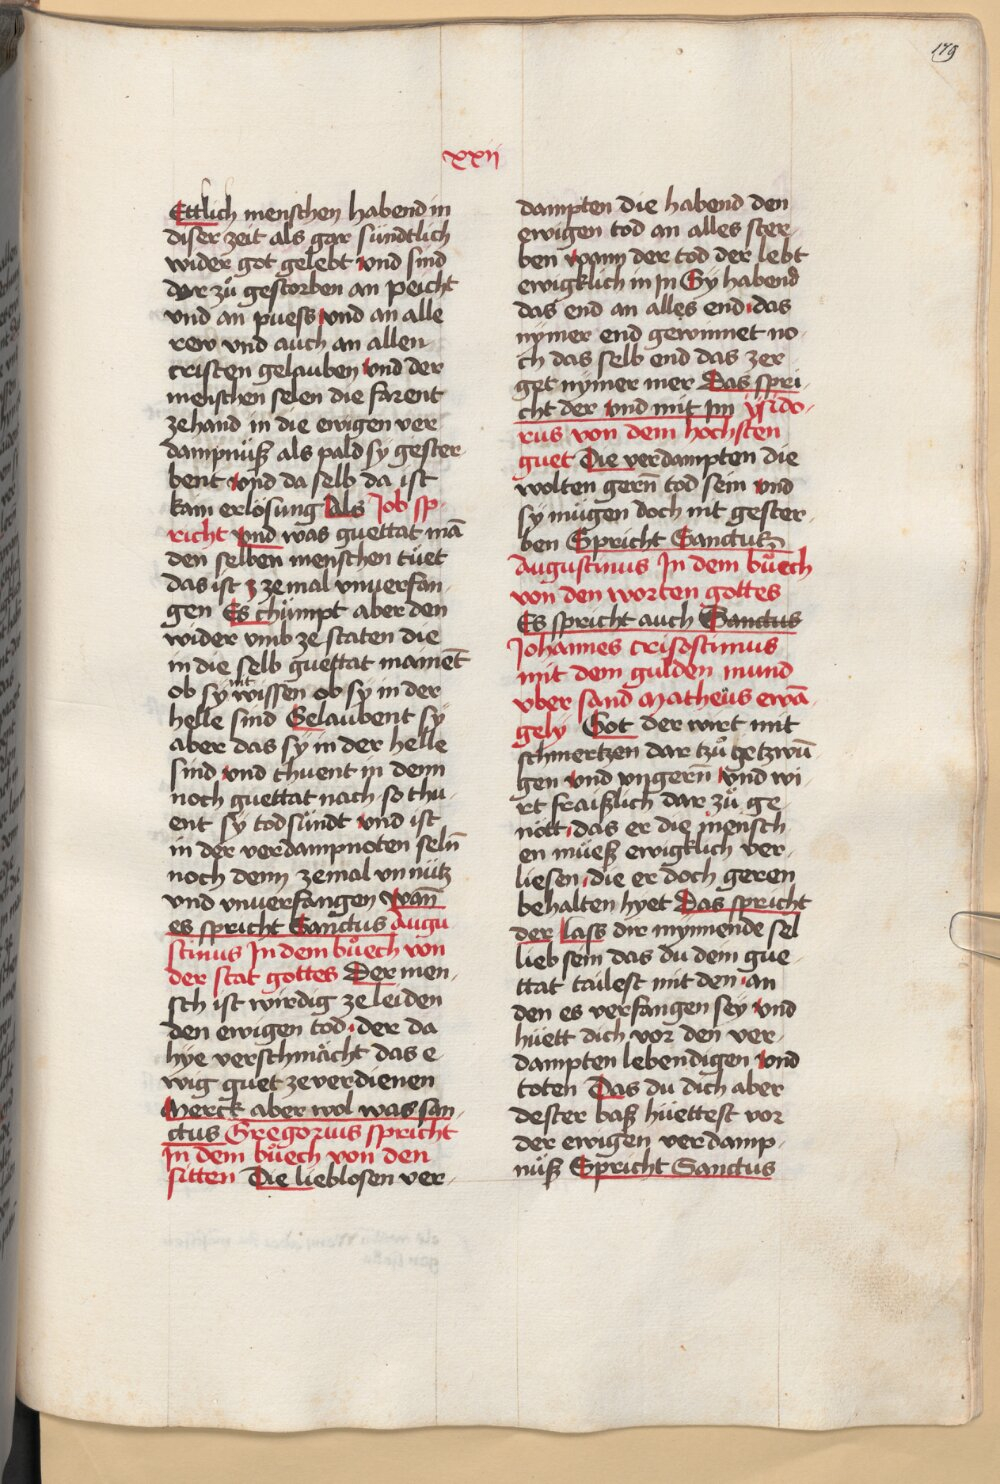 179
xxij
Ettlich menschen habend in
diser zeit als gar sündtlich
wider got gelebt und sind
dar zů gestorben an peicht
vnd an puess und an alle
rew vnd auch an allen
cristen gelauben und der
menschen selen die farent
zehand in die ewigen ver
dampnüß als pald sy gester
bent und da selb da ist
kain erlösung Als Job sp
richt Und was guettat mā
den selben menschen tüet
das ist ze mal vnuerfan
gen Es chümpt aber den
wider vmb ze staten die
in die selb guettat mainet
ob sy nit wissen ob sy in der
helle sind Gelaubent sy
aber das sy in der helle
sind und thuent in denn
noch guettat nach so thu
ent sy todsündt und ist
in der verdampnoten seln̄
noch denn zemal vnnütz
vnd vnuerfangen Wan̄
es spricht Sanctus Augu
stinus In dem bůech von
der stat gottes Der men
sch ist wirdig ze leiden
den ewigen tod der da
hye verschmächt das e
wig guet zeverdienen
Merck aber wol was san
ctus Gregorius spricht
In dem bůech von den
sitten Die lieblosen ver
dampten die habend den
ewigen tod an alles ster
ben wann der tod der lebt
ewigklich in In Sy habend
das end an alles end das
nymer end gewinnet no
ch das selb end das zer
get nymer mer Das spri
cht der und mit Im ysido
rus von dem höchsten
guet Die verdampten die
wolten gern̄ tod sein und
sy mügen doch nit gester
ben Spricht Sanctus
Augustinus In dem bůech
von den worten gottes
Es spricht auch Sanctus
Johannes crisostimus
mit dem gulden mund
vber sand Matheüs ewā
gely Got der wirt mit
schmertzen dar tzů getzwū
gen und vngern̄ und wi
rt fraißlich dar zů ge
nött das er die mensch
en müeß ewigklich ver
liesen die er doch geren
behalten hyet Das spricht
der Lass dir nymmende sel
lieb sein das du dein gue
ttat tailest mit den an
den es verfangen sey und
hüett dich vor den ver
dampten lebendigen und
toten Das du dich aber
dester baß hüettest vor
der ewigen verdamp
nüß Spricht Sanctus